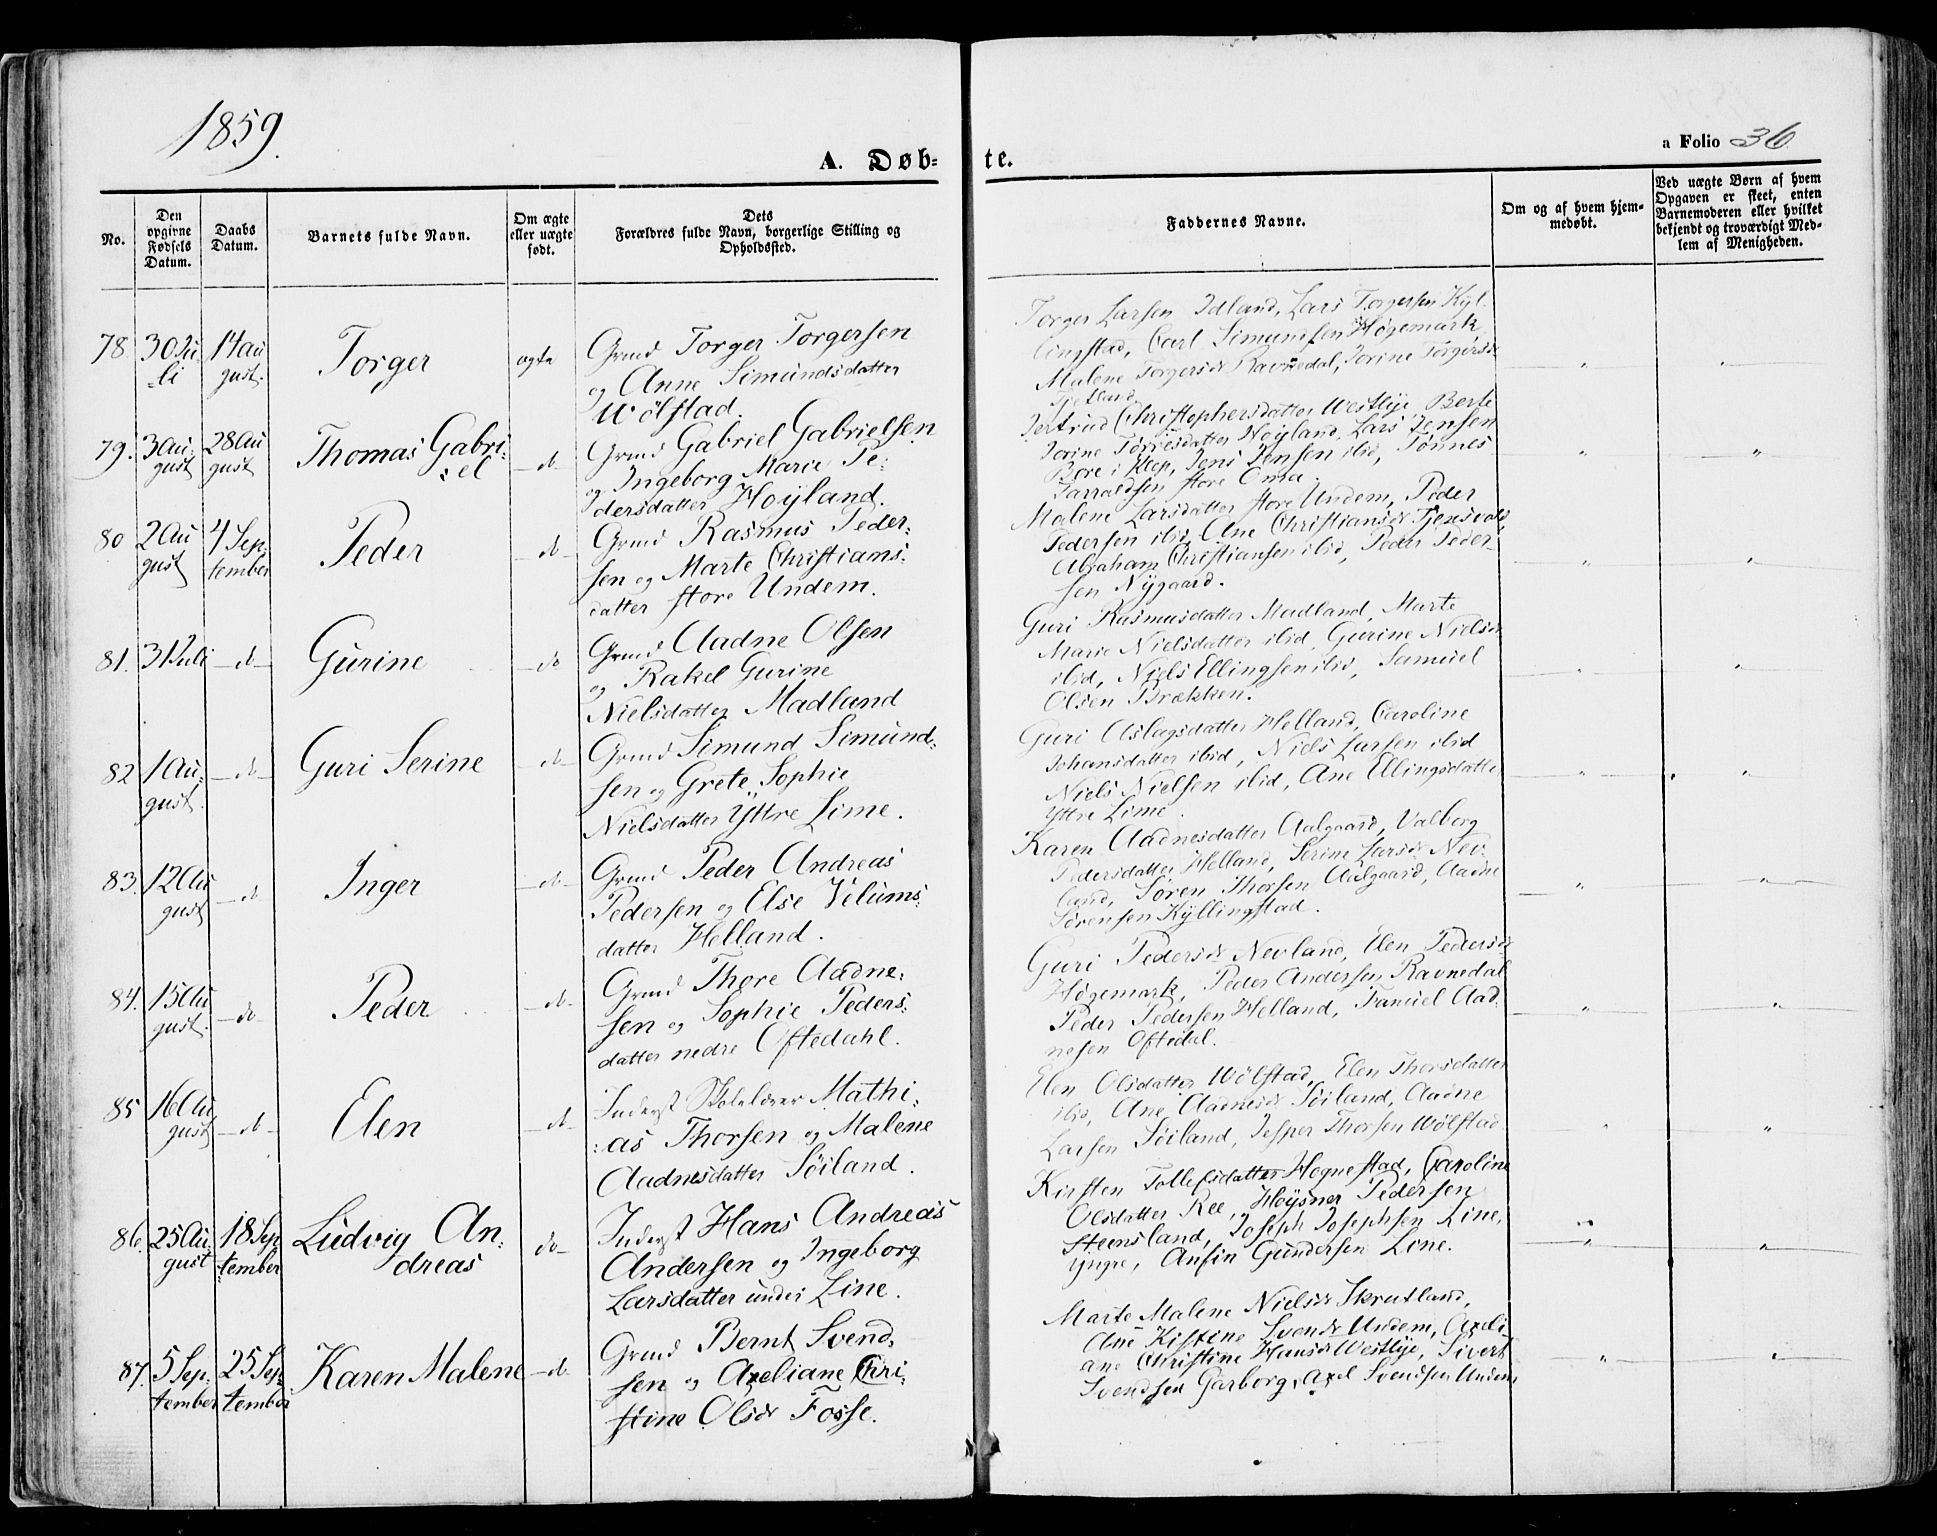 1859.
A. Døb-
te.
a Folio 36
No.
Den
opgivne
Fødsels
Datum.
Daabs
Datum.
Barnets fulde Navn.
Om ægte
eller uægte
født.
Dets
Forældres fulde Navn, borgerlige Stilling og
Opholdssted.
Faddernes Navne.
Om og af hvem hjem-
medøbt.
Ved uægte Børn af hvem
Opgaven er skeet, enten
Barnemoderen eller hvilket
bekjendt og troværdigt Med-
lem af Menigheden.
78.
30 Ju-
li
14 Au
gust.
Torger
ægte
Grmd Torger Torgersen
og Anne Simundsdatter
Wölstad.
Torger Larsen Idland, Lars Torgersen Kyl-
lingstad, Carl Simundsen Høgemark
Malene Torgersd. Ravnedal, Torine Torgersd.
Tjetland
79.
3 Au-
gust
28 Au
gust
Thomas Gabri-
el
do
Grmd Gabriel Gabrielsen
og Ingeborg Marie Pe-
dersdatter Hoyland.
Jertrud Christophersdatter Westlye, Berte
Torine Torresdatter Hoyland, Lars Jensen
Bore i Klep, Jens Jensen ibid, Tønnes
Tarraldsen store Oma.
80
2 Au
gust
4 Sep-
tember
Peder
do
Grmd Rasmus Peder-
sen og Marte Christians-
datter store Undem.
Malene Larsdatter store Undem, Peder
Pedersen ibid, Ane Christiansd. Tjensvold,
Abraham Christiansen ibid, Peder Peder-
sen Nygaard.
81.
31 Juli
do
Gurine
do
Grmd Aadne Olsen
og Rakel Gurine
Nielsdatter Madland
Guri Rasmusdatter Madland, Marte
Marie Nielsdatter ibid, Gurine Nielsd.
ibid, Niels Ellingsen ibid, Samuel
Olsen Brækken.
82
1 Au-
gust.
do
Guri Serine
do
Grmd Simund Simund-
sen og Grete Sophie
Nielsdatter Yttre Lime.
Guri Aslagsdatter Helland, Caroline
Johansdatter ibid, Niels Larsen ibid
Niels Nielsen ibid, Ane Ellingsdatter
Yttre Lime.
83.
12 Au
gust
do
Inger
do
Grmd Peder Andreas
Pedersen og Else Velums-
datter Helland.
Karen Aadnesdatter Aalgaard, Valborg
Pedersdatter Helland, Serine Larsd. Nev-
land, Søren Thorsen Aalgaard, Aadne
Sørensen Kyllingstad.
84.
15 Au
gust.
do
Peder
do
Grmd Thore Aadne-
sen og Sophie Peders-
datter nedre Oftedahl.
Guri Pedersd. Nevland, Elen Pedersd.
Høgemark, Peder Andersen Ravnedal
Peder Pedersen Helland, Samuel Aad-
nesen Oftedal.
85
16 Au
gust
do
Elen
do
Inderst Skolelærer Mathi-
as Thorsen og Malene
Aadnesdatter Söiland.
Elen Olsdatter Wölstad, Elen Thorsdatter
ibid, Ane Aadnesd. Söiland, Aadne
Larsen Söiland, Jesper Thorsen Wølstad
86.
25 Au
gust
18 Sep
tember
Ludvig An-
dreas
do
Inderst Hans Andreas
Andersen og Ingeborg
Larsdatter under Line.
Kirsten Tollefsdatter Hognestad, Caroline
Olsdatter Ree, Høysner Pedersen
Steensland, Joseph Josephsen Line,
yngre, Anfin Gundersen Line.
87.
5 Sep-
tember
25 Sep-
tember
Karen Malene
do
Grmd Bernt Svend-
sen og Axeliane Chri-
stine Olsd. Fosse.
Marte Malene Nielsd. Skrutland,
Ane Kistine Svends. Undem, Axeli-
ane Christine Hansd. Westlye, Sivert
Svendsen Garborg, Axel Svendsen Undem